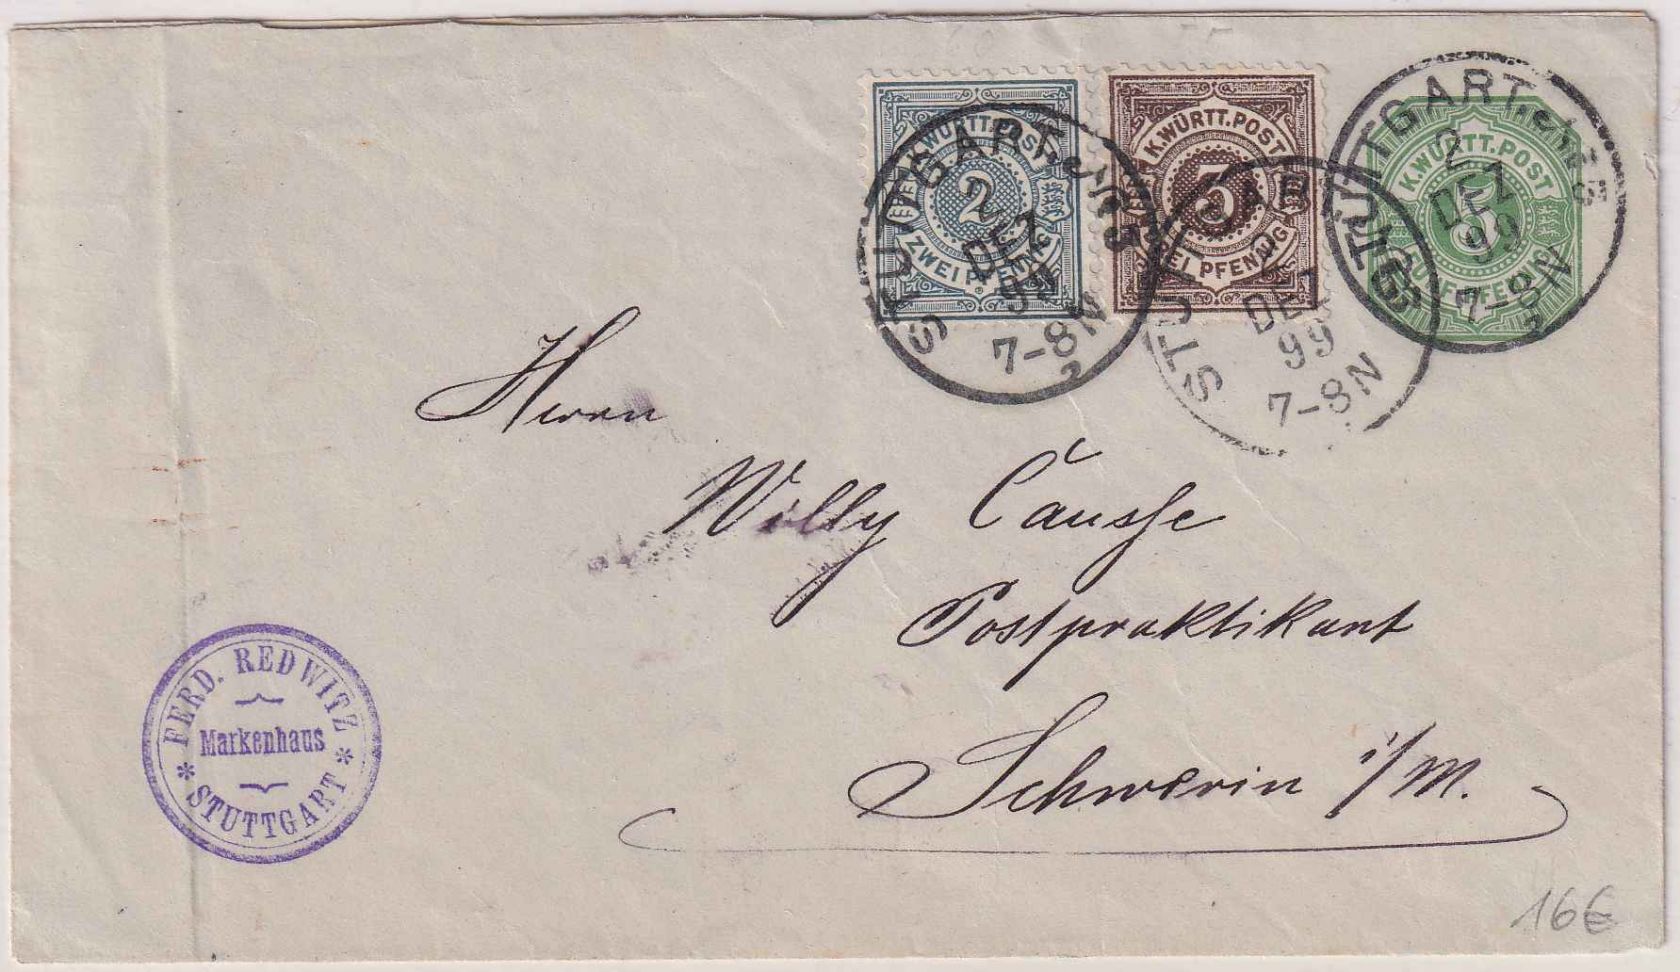 K. WÜRTT. POST
2
ZWEI PFENNIG
K. WÜRTT. POST
3
DREI PFENNIG
K. WÜRTT. POST
5
FÜNF PFENNIG
STUTTGART
2
DEZ
99
7-8N
2
STUTTGART
DEZ
99
7-8N
STUTTGART
2
DEZ
99
7-8N
2
Herrn
Willy Causse
Postpraktikant
Schwerin i/M.
FERD. REDWITZ
Markenhaus
* STUTTGART *
16€